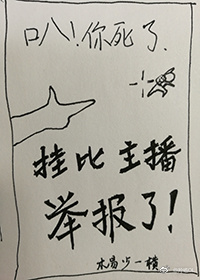 口八！你死了.
挂比主播
举报了！
木易少一横